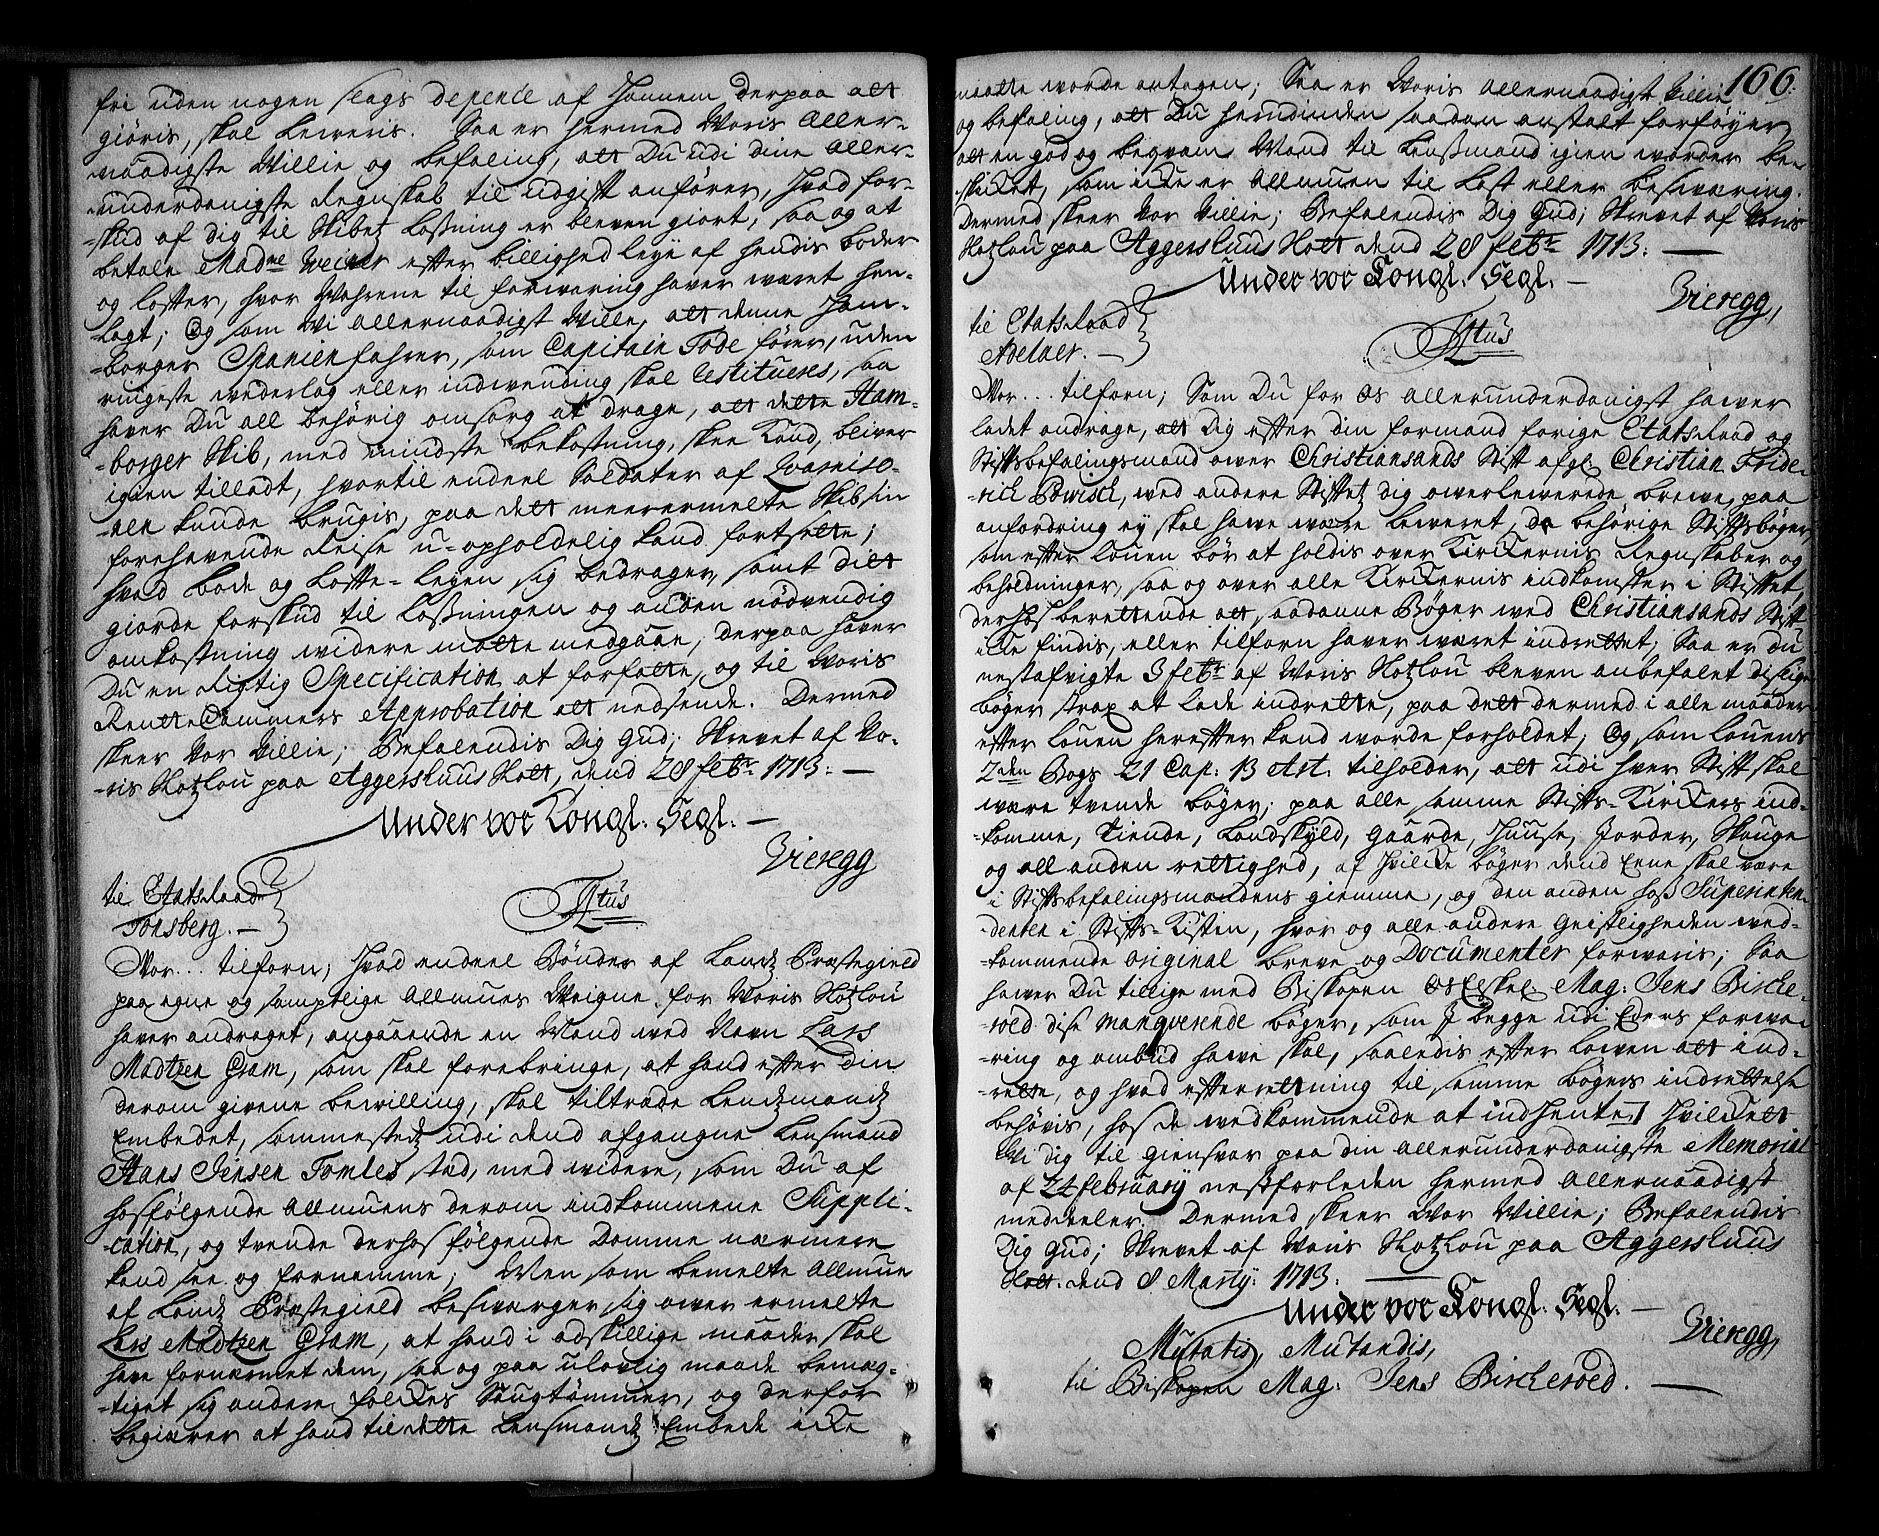 fri uden nogen slags depence af Hannem derpaa alt
giøris, skal leweris. Saa er hermed Woris Aller-
naadigste Willie og befaling, att Du udi dine aller-
underdanigste Regnskab til udgift anfører, hvad for-
-skud af dig til Skibets losning er bleven giort, saa og at
betale Madme Weiner efter billighed leye af hendis boder
og lofter, hvor Wahrene til forwaring hawer wæret hen-
lagt; Og som Wi allernaadigst Wille, att denne Ham-
-borger Spanienfahrer, som Capitain Tode fører, uden
ringeste wederlag eller indwending skal restitueres, saa
hawer Du all behørig omsorg at drage, att dette Ham-
-borger Skib, med mindste bekostning, skee kand, bliwer
igien tilladt, hvortil endeel Soldater af Guarniso-
-nen kunde brugis, paa dett meerermelte Skib sin
forehavende Reise u-opholdelig kand fortsette;
hvad bode og lofte-leyen sig bedrager, samt ditt
giorde forskud til losningen og anden nødvendig
omkostning widere motte medgaae, derpaa hawer
Du en Rigtig Specification at forfatte, og til Woris
RentteCammers Approbation att nedsende. Dermed
skeer Vor Villie; Befalendis Dig Gud; Skrevet af Vo-
-ris Slotzlou paa Aggershuus Slott, dend 28 febr. 1713. —
Under vor Kongl. Segl. —
Vieregg
til Etatsraad
Tonsberg. —
Titus
Wor... tilforn; Hvad endeel Bønder af Lands Præstegield
paa egne og samptlige Allmues Weigne for Woris Slotzlou
hawer andraget, angaaende en Mand wed Navn Lars
Madtzen Gram, som skal forebringe, at hand efter din
derom givene bewilling, skal tiltræde Lendsmands
Embedet, sammesteds udi dend afgangne Lensmand
Hans Jensen Tomles sted, med widere, som Du af
hosfølgende Allmuens derom indkommene Suppli-
-cation, og tvende derhos følgende Domme nærmere
kand see og fornemme; Men som bemelte Allmue
af Lands Præstegield beswærger sig ower ermelte
Lars Madtzen Gram, at hand i adskillige maader skal
have fornærmet dem, saa og paa ulovlig maade bemæg-
-tiget sig andere folckes Saugtømmer, og derfor
begiærer at hand til dette Lensmands Embede icke
166.
maatte worde antagen; Saa er Woris allernaadigst Villie
og befaling, att Du herudinden saadan anstalt forføyer,
att en god og beqvam Mand til Lenssmand igien worder be-
skicket, som icke er Allmuen til Last eller beswæring.
Dermed skeer Vor Villie; Befalendis Dig Gud; Skrevet af Voris
Slotzlou paa Aggershuus Slott dend 28 febr. 1713: —
Under vor Kongl. Segl. —
Vieregg,
til Etatsraad
Adelaer. —
Titus
Vor... tilforn; Som Du for Os allerunderdanigst hawer
ladet andrage, att Dig efter din formand forige Etatsraad og
Stiftsbefalingsmand ower Christiansands Stift afgl. Christian Fride-
-rich Powisch, wed andere Stiftet Dig owerlewerede brewe, paa
anfordring ey skal hawe være leweret, de behørige Stiftsbøger,
som efter Louen bør at holdis over Kirckernis Regnskaber og
beholdninger, saa og over alle Kirckernis indkomster i Stiftet,
derhos berettende att saadanne Bøger wed Christiansands Stift
icke findis, eller tilforn haver wæret indrettet; Saa er du
nestafvigte 3 febr. af Woris Slotzlou bleven anbefalet dislige
bøger strax at lade indrette, paa dett dermed i alle maader
efter Louen herefter kand worde forholdet; Og som Louens
2den Bogs 21 Cap: 13 Art. tilholder, att udi hver Stift skal
wære tvende bøger, paa alle somme Stifts-Kirckers ind-
-komme, Tiende, Landskyld, Gaarde, Huuse, Jorder, Skouge
og all anden rettighed, af hvilcke bøger dend Eene skal være
i Stiftsbefalingsmandens giemme, og den anden hoss Superinten-
-denten i Stifts-Kistin, hvor og alle andere Geistligheden wed-
-kommende original breve og Documenter forwaris; Saa
hawer Du tillige med Biskopen Os Elskel. Mag: Jens Birche-
-roed disse manqverende bøger, som J begge udi Eders forwa-
-ring og ombud hawe skal, saaledis efter Lowen att ind-
-rette, og hvad efterretning til somme bøgers indrettelse
behøvis, hos de wedkommende at indhente, hvilcket
Wi dig til giensvar paa din allerunderdanigste Memorial
af 24 february nestforleden hermed Allernaadigst
meddeeler. Dermed skeer Wor Willie; Befalendis
Dig Gud; Skrevet af Woris Slotzlou paa Aggershuus
Slott. dend 8 Marty: 1713. —
Under vor Kongl. Segl. —
Vieregg,
Mutatis, Mutandis,
til Biskopen Mag: Jens Bircheroed. —